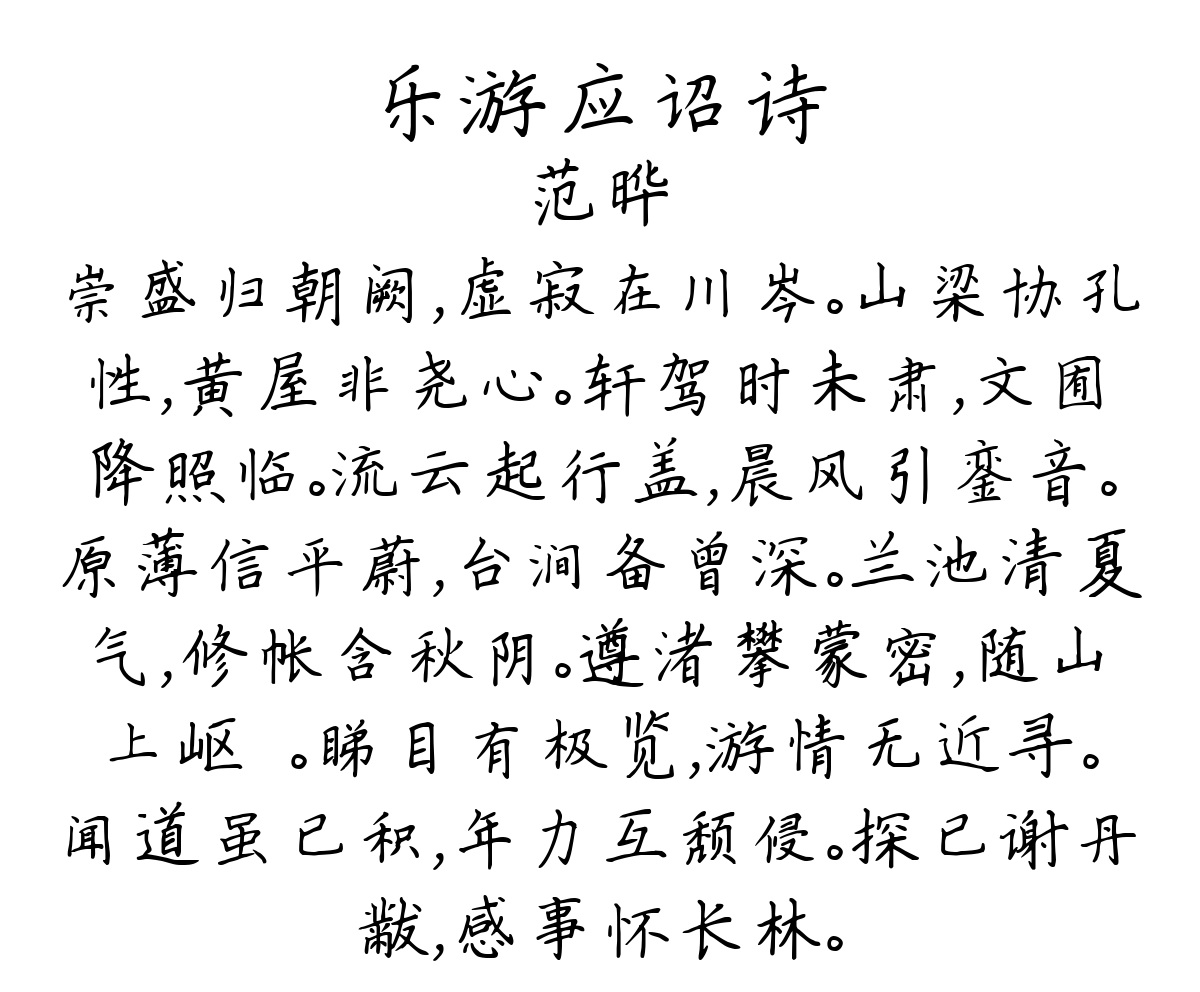 乐游应诏诗
范晔
崇盛归朝阙,虚寂在川岑。山梁协孔
性,黄屋非尧心。轩驾时未肃,文囿
降照临。流云起行盖,晨风引銮音。
原薄信平蔚,台涧备曾深。兰池清夏
气,修帐含秋阴。遵渚攀蒙密,随山
上岖 。睇目有极览,游情无近寻。
闻道虽已积,年力互颓侵。探已谢丹
黻,感事怀长林。